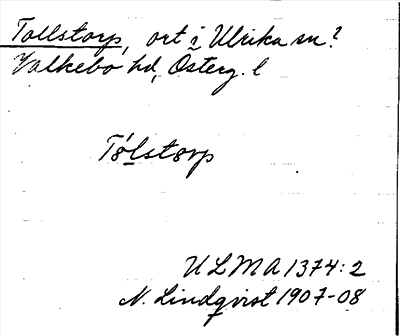 Tollstorp, ort i Ulrika sn?
Valkebo hd, Österg. l
Tólstorp
ULMA 1374:2
N. Lindqvist 1907-08